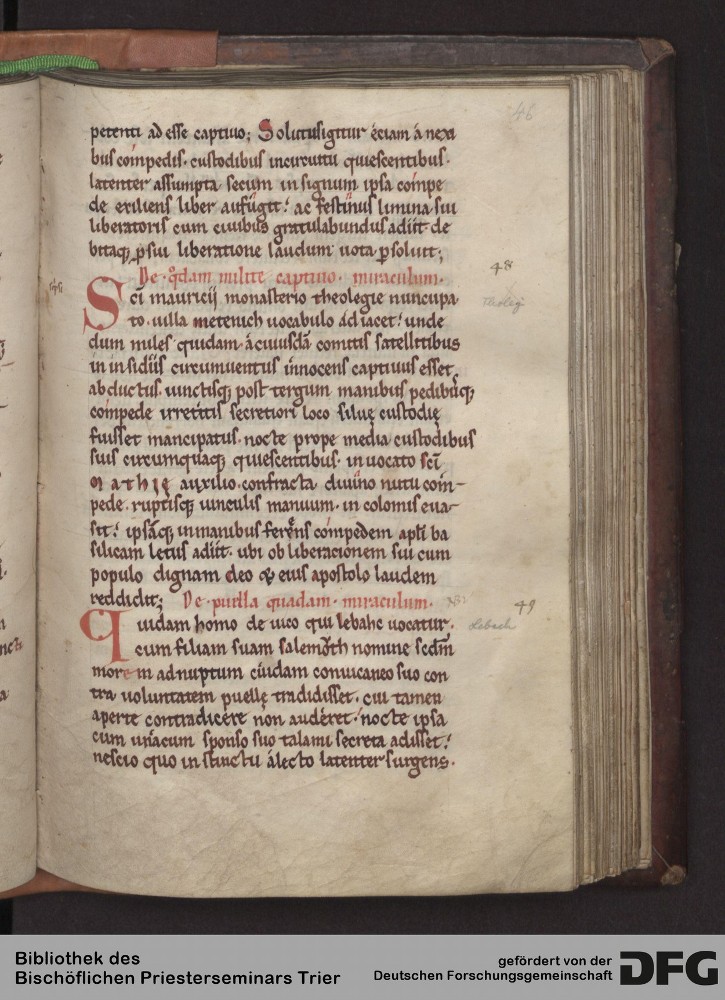 46
petenti adesse captiuo; Solutus igitur eciam a nexi
bus compedis. custodibus incuruitu quiescentibus.
latenter assumpta secum insignum ipsa compe
de exiliens liber aufugit. ac festinus limina sui
liberatoris cum ciuibus gratulabundus adiit de
bitaqꝫ ꝑsui liberatione laudum uota ꝑsoluit;
De qͦdam milite captiuo. miraculum.
Sc̄i mauricij monasterio theolegie nuncupa
48
to. uilla metenich uocabulo adiacet. unde
Theolegi
dum miles quidam. acuiusdā comitis satellitibus
in insidiis circumuentus innocens captiuus esset
abductus. uinctisqꝫ post tergum manibus pedibusqꝫ
compede irretitis secretiori loco siluę custodię
fuisset mancipatus. nocte prope media custodibus
suis circumquaqꝫ quiescentibus. inuocato sc̄i
Mathię auxilio. confracta diuino nutu com-
pede. ruptisqꝫ uinculis manuum. incolomis eua-
sit. ipsāqꝫ inmanibus ferens compedem apl̄i ba
silicam letus adiit. ubi ob liberacionem sui cum
populo dignam deo & eius apostolo laudem
reddidit; De puella quadam. miraculum.
49
Quidam homo de uico qui lebahc uocatur.
Lebach
cum filiam suam salemoth nomine scd̄m
morem adnuptum cuidam conuicaneo suo con
tra uoluntatem puellę tradidisset. cui tamen
aperte contradicere non auderet. nocte ipsa
cum unacum sponso suo talami secreta adisset.
nescio quo instinctu alecto latenter surgens.
Bibliothek des
Bischöflichen Priesterseminars Trier
gefördert von der
Deutschen Forschungsgemeinschaft
DFG